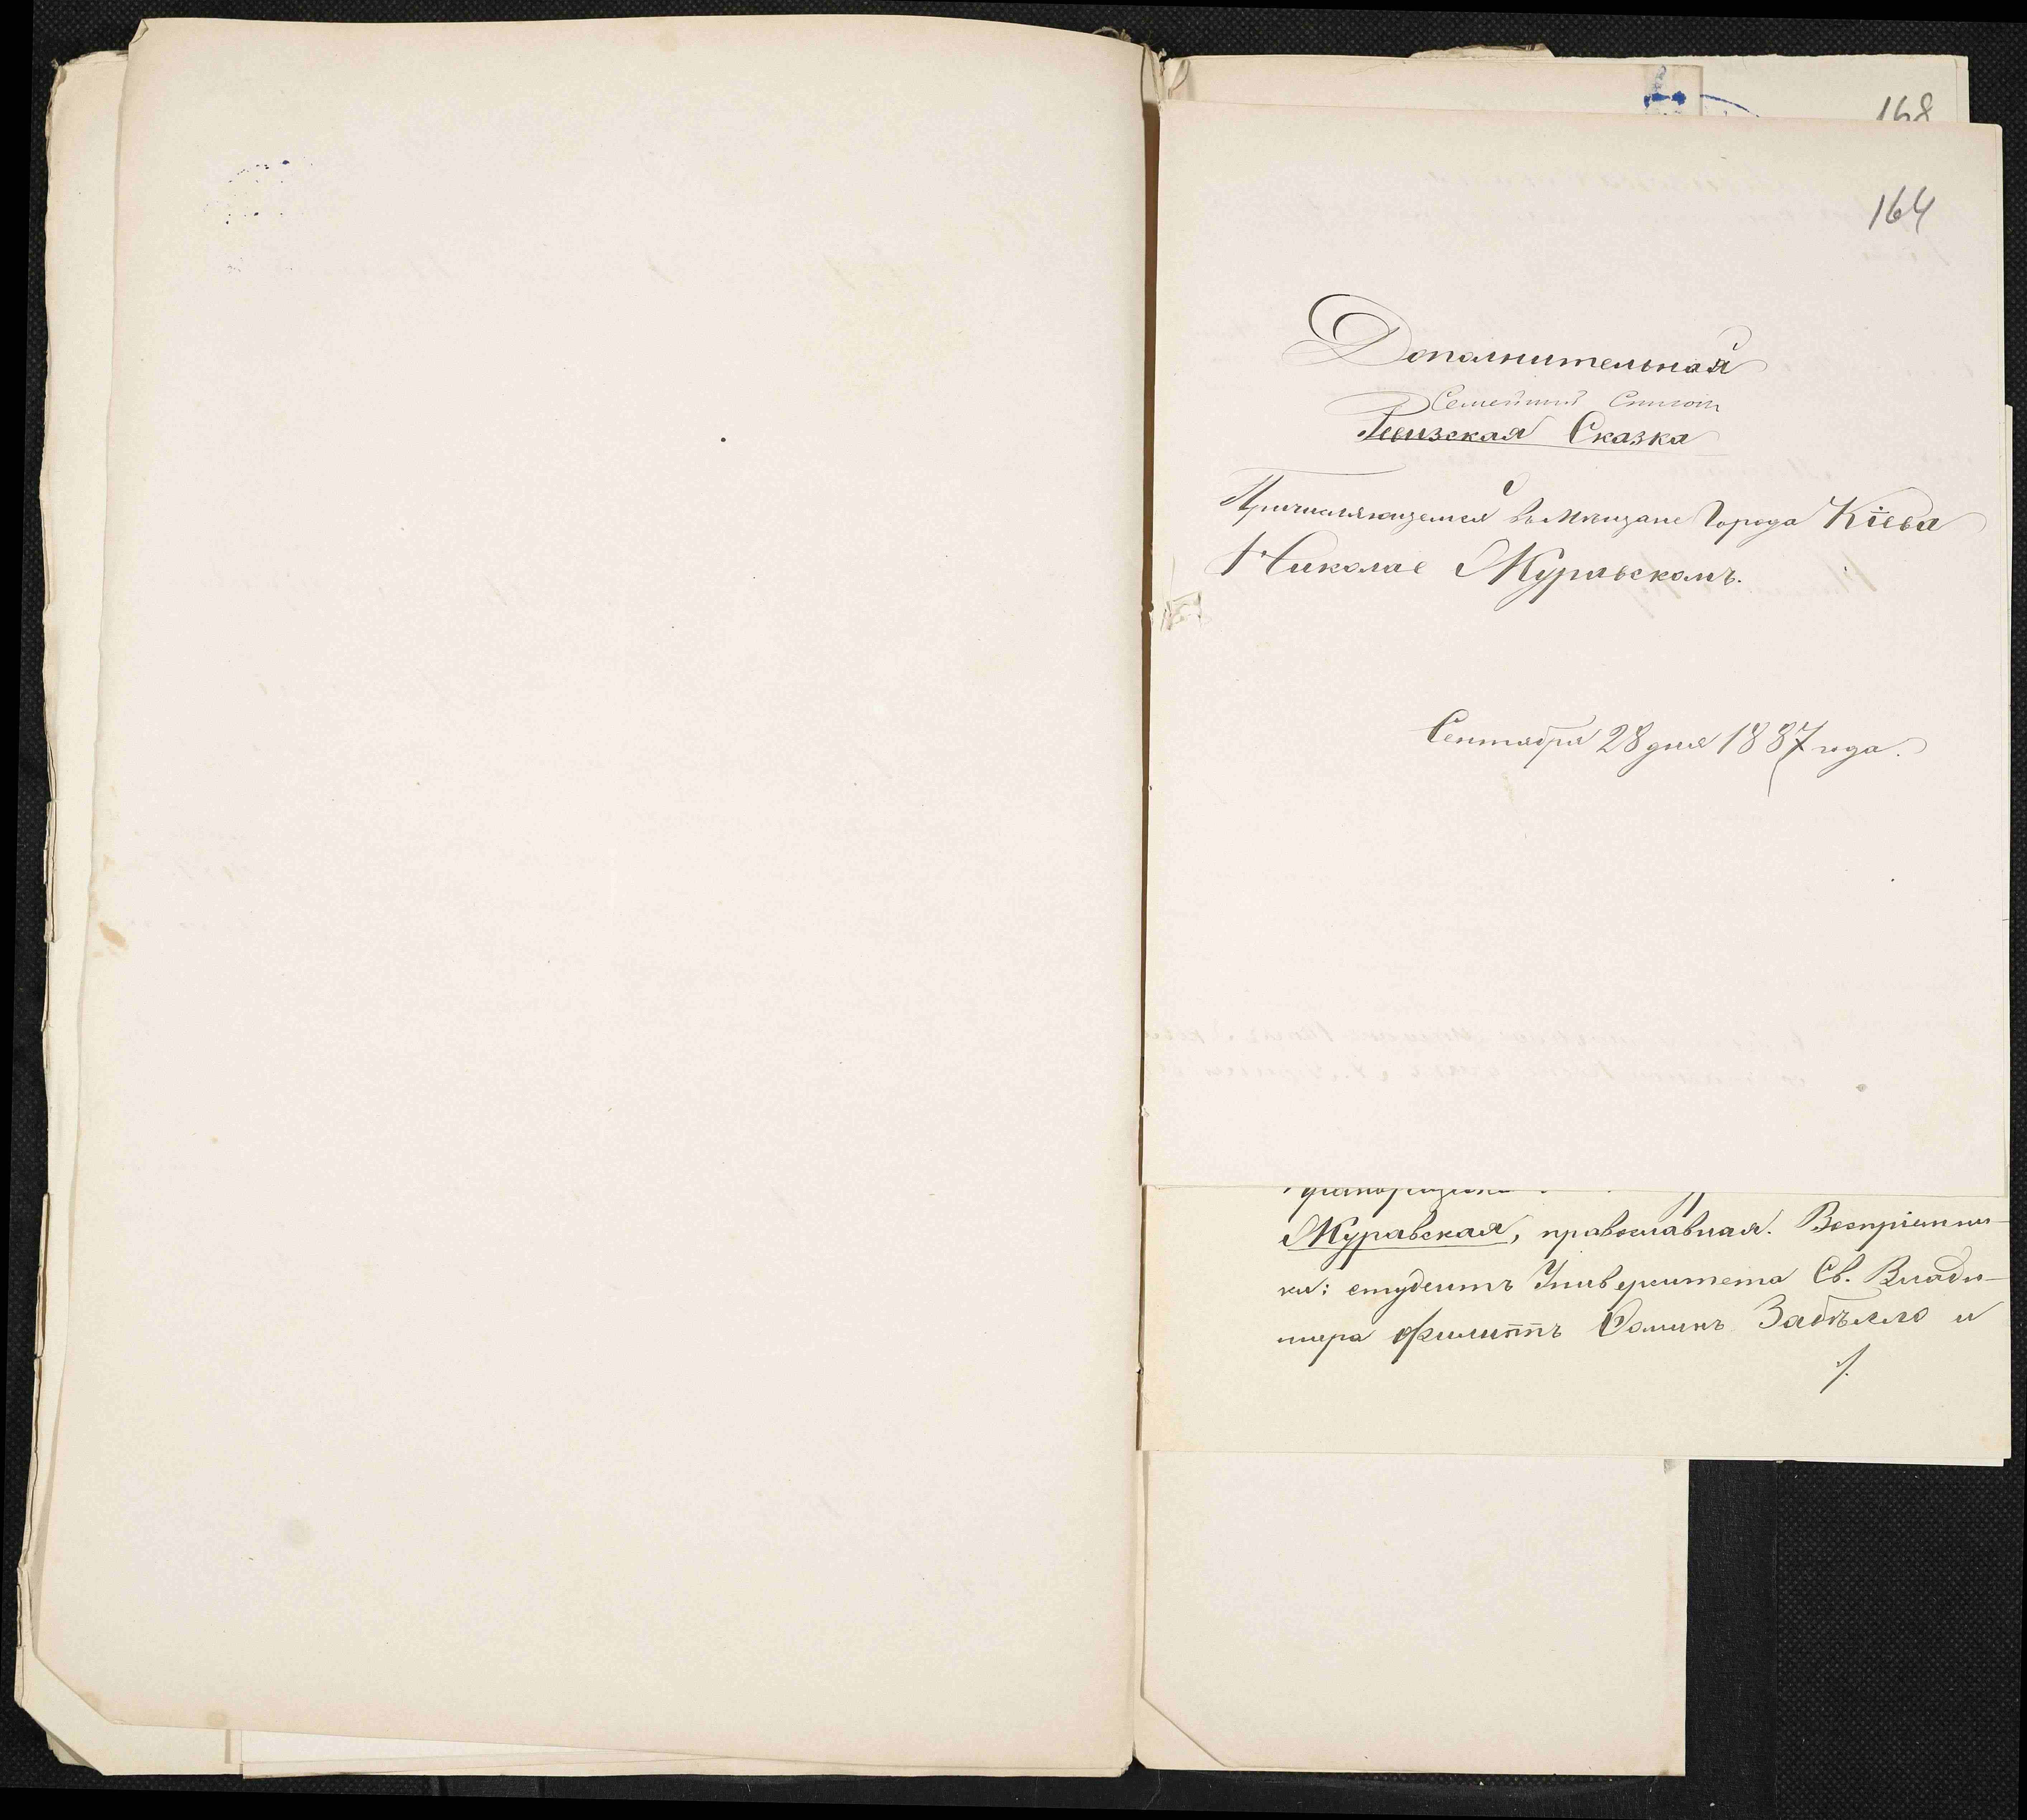 168
164
Дополнительный
Семейный Списокъ
Ревизская Сказка
Причисляющемся въ мѣщане Города Кіева
Николае Журавскомъ.
Сентября 28 дня 1887 года.
Журавская, православная. Воспріемни-
ки: студентъ Университета Св. Влади-
мира Филиппъ Ѳоминъ Забѣлло и
./.